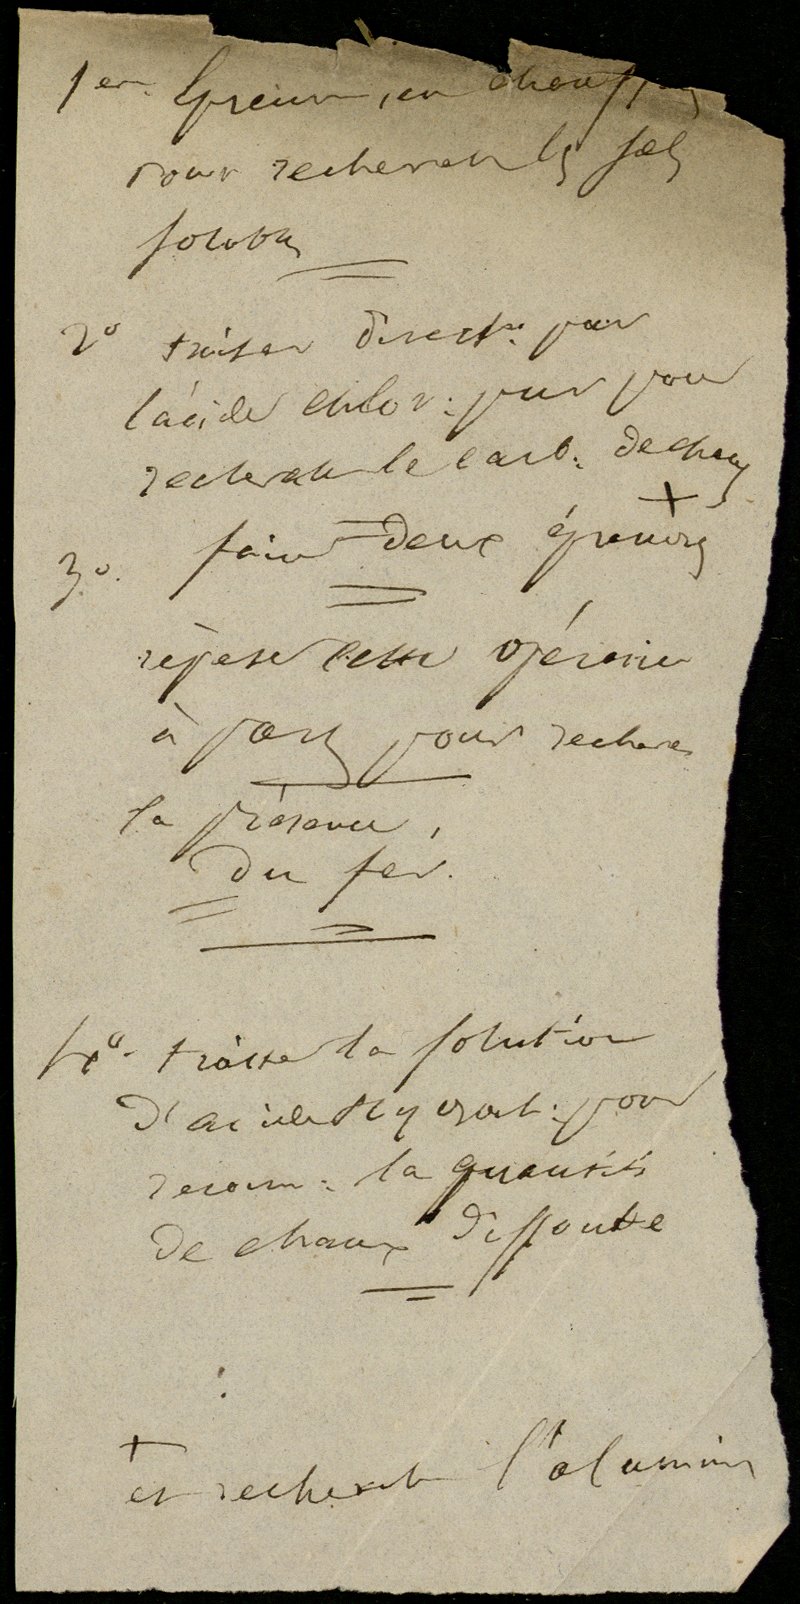 1er. Epreuve, en chauffant
pour rechercher les sels
solubles
2° traiter directt. par
l'acide chlor: pur pour
rechercher le carb: de chaux
+
3°. faire deux épreuves
répeter cette opération
à part pour rechercher
la présence,
du fer.
4°. traiter la solution
d'acide hydroch. pour
reconn: la quantité
de chaux dissoute
+
et rechercher l'alumine